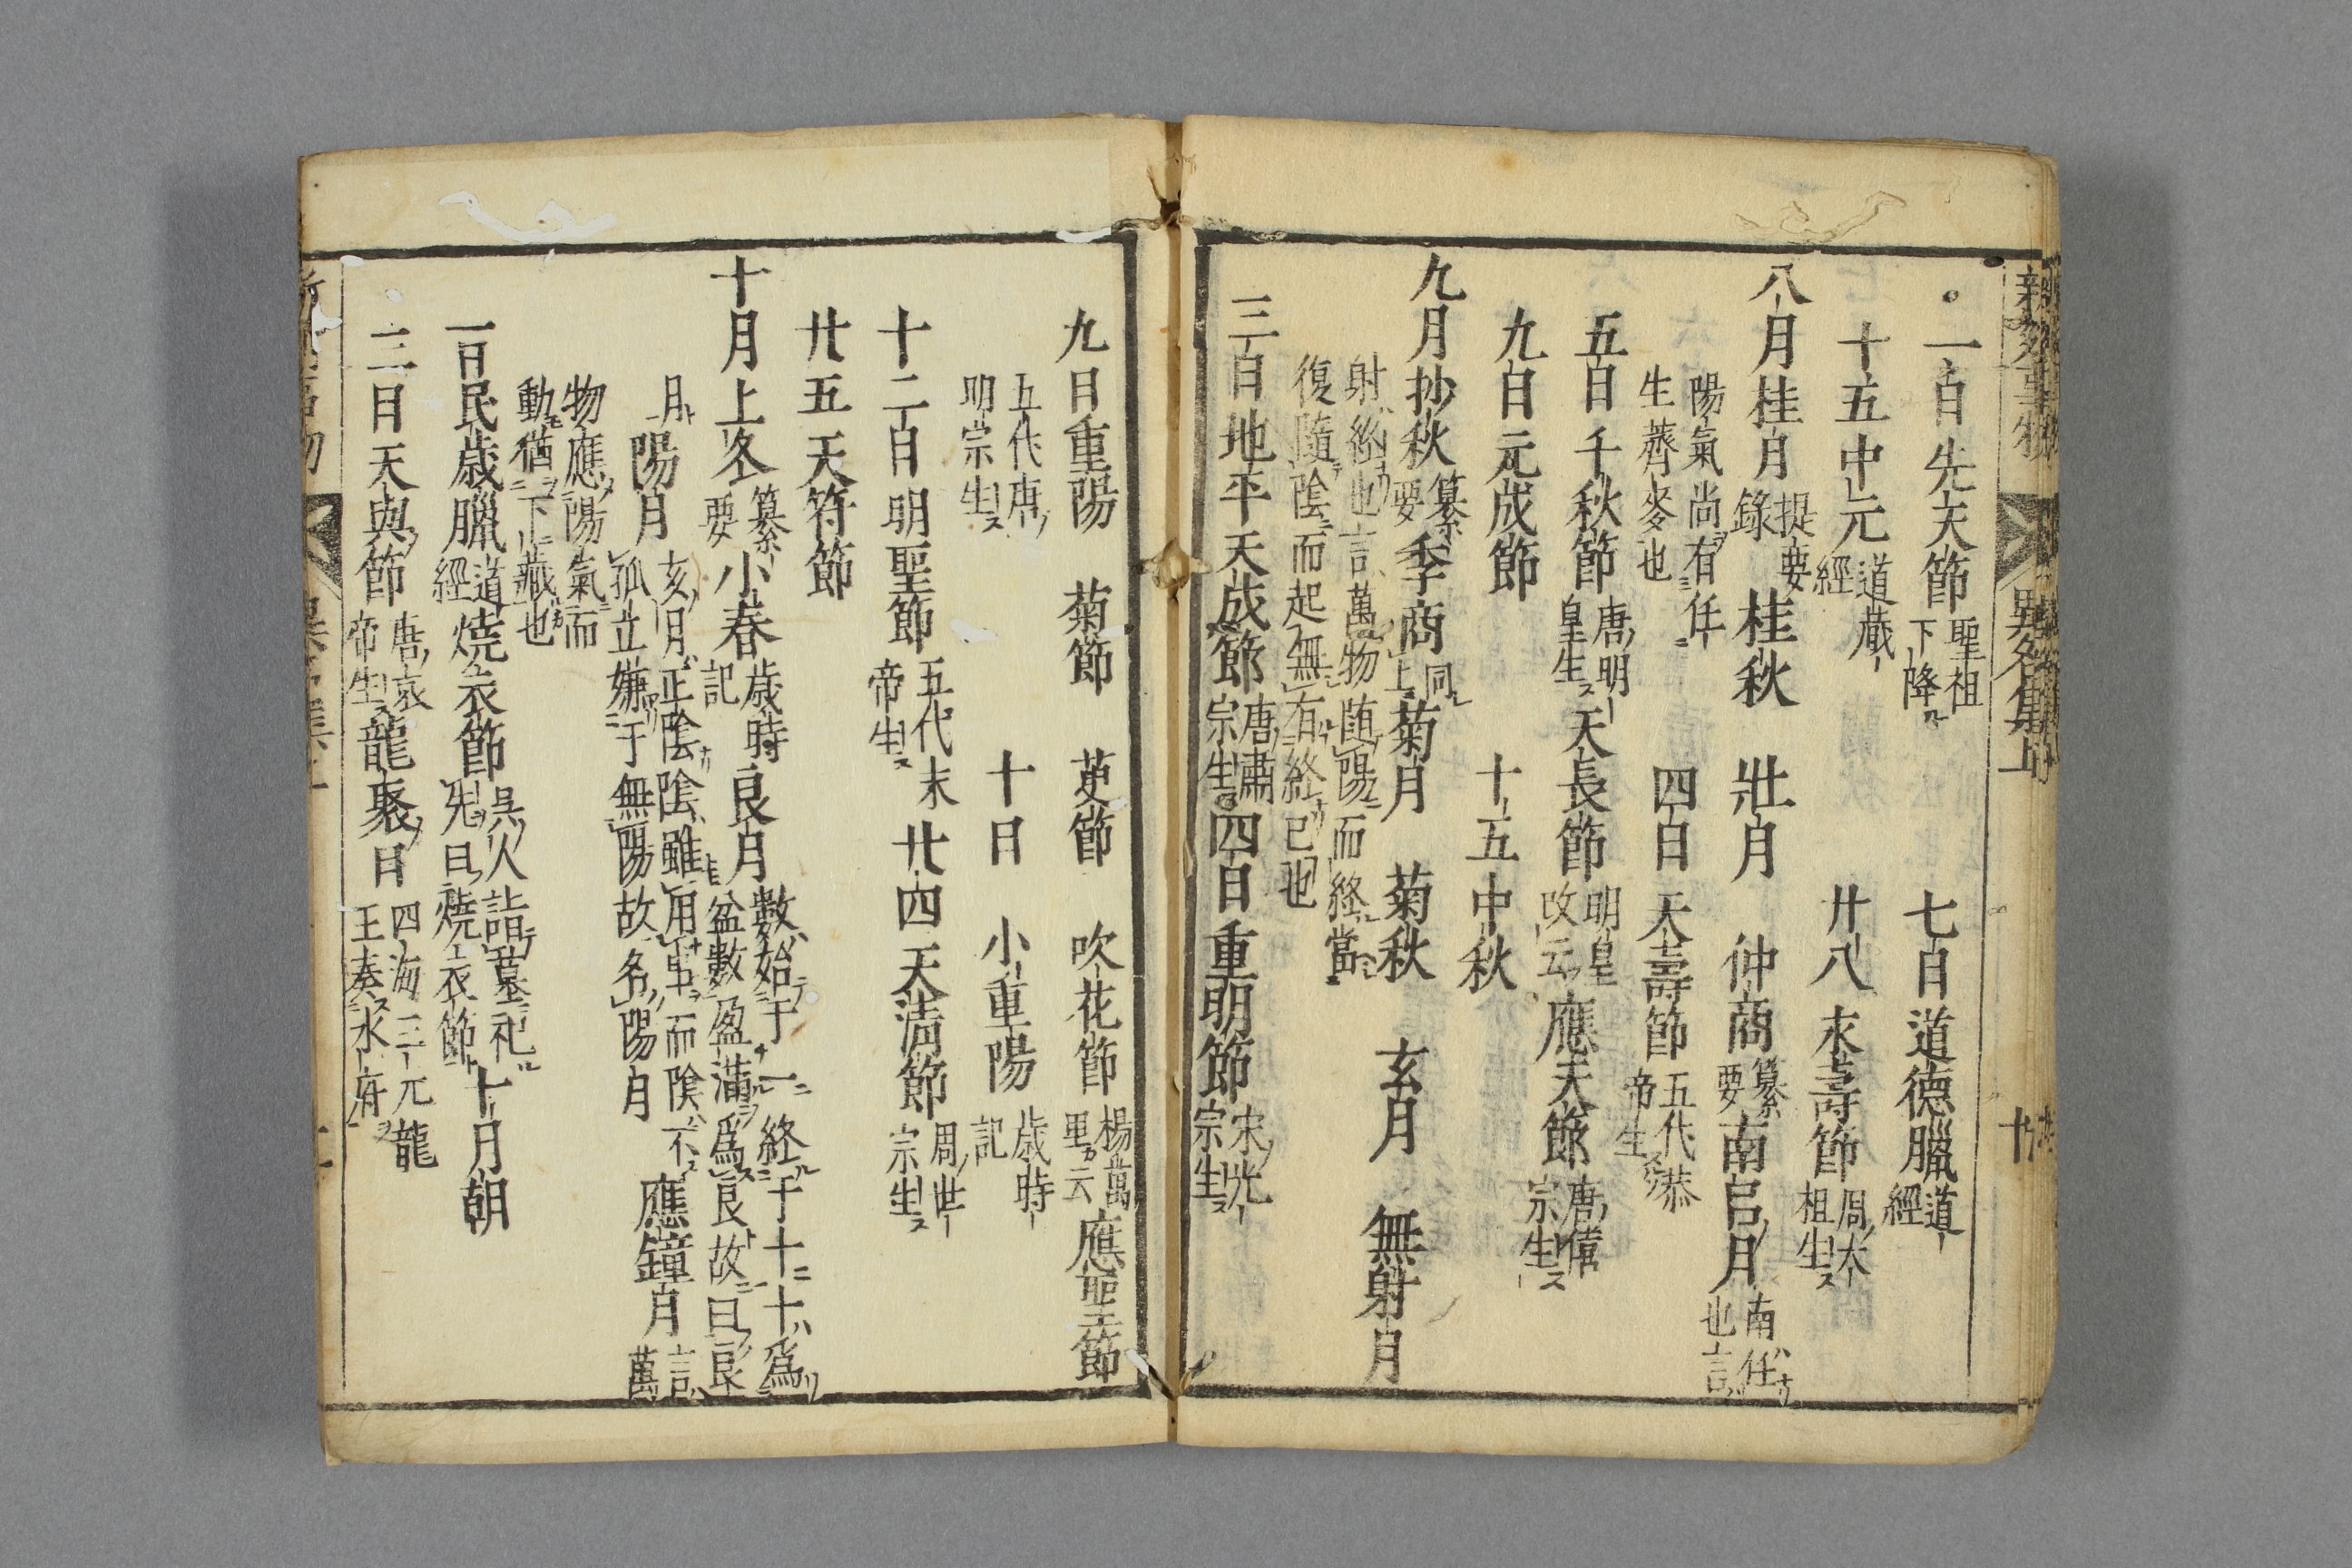 一日先天節聖祖下降 七日道德臘道經
十五中元道藏經 廿八永壽節周太祖生
八月桂月提要錄 桂秋 壯月 仲商纂要南呂月南任也言
陽氣尚有任生薺麥也 四日 天壽節五代恭帝生
五日千秋節唐明皇生天長節明皇改云應天節唐僖宗生
九日元成節 十五中秋
九月抄秋纂要季商同上菊月 菊秋 玄月 無射月
射終也言萬物随陽而終當復隨陰而起無有終已也
三日地平天成節唐肅宗生四日重明節宋光宗生
九日重陽 菊節 茰節 吹花節楊萬里云應聖節
五代唐明宗生 十日 小重陽歲時記
十二日明聖節五代末帝生 廿四天清節周世宗生
廿五天符節
十月上冬纂要小春歲時記良月數始于一終于十十為盆數盈滿為良故曰良
月陽月亥月正陰陰雖用事而陰不孤立嫌于無陽故名陽月應鐘月言萬
物應陽氣而動猶下藏也
一日民歲臘道經燒衣節吳人詣墓祀先曰燒衣節十月朝
三日天與節唐哀帝生龍聚日四海三元龍王奏水府